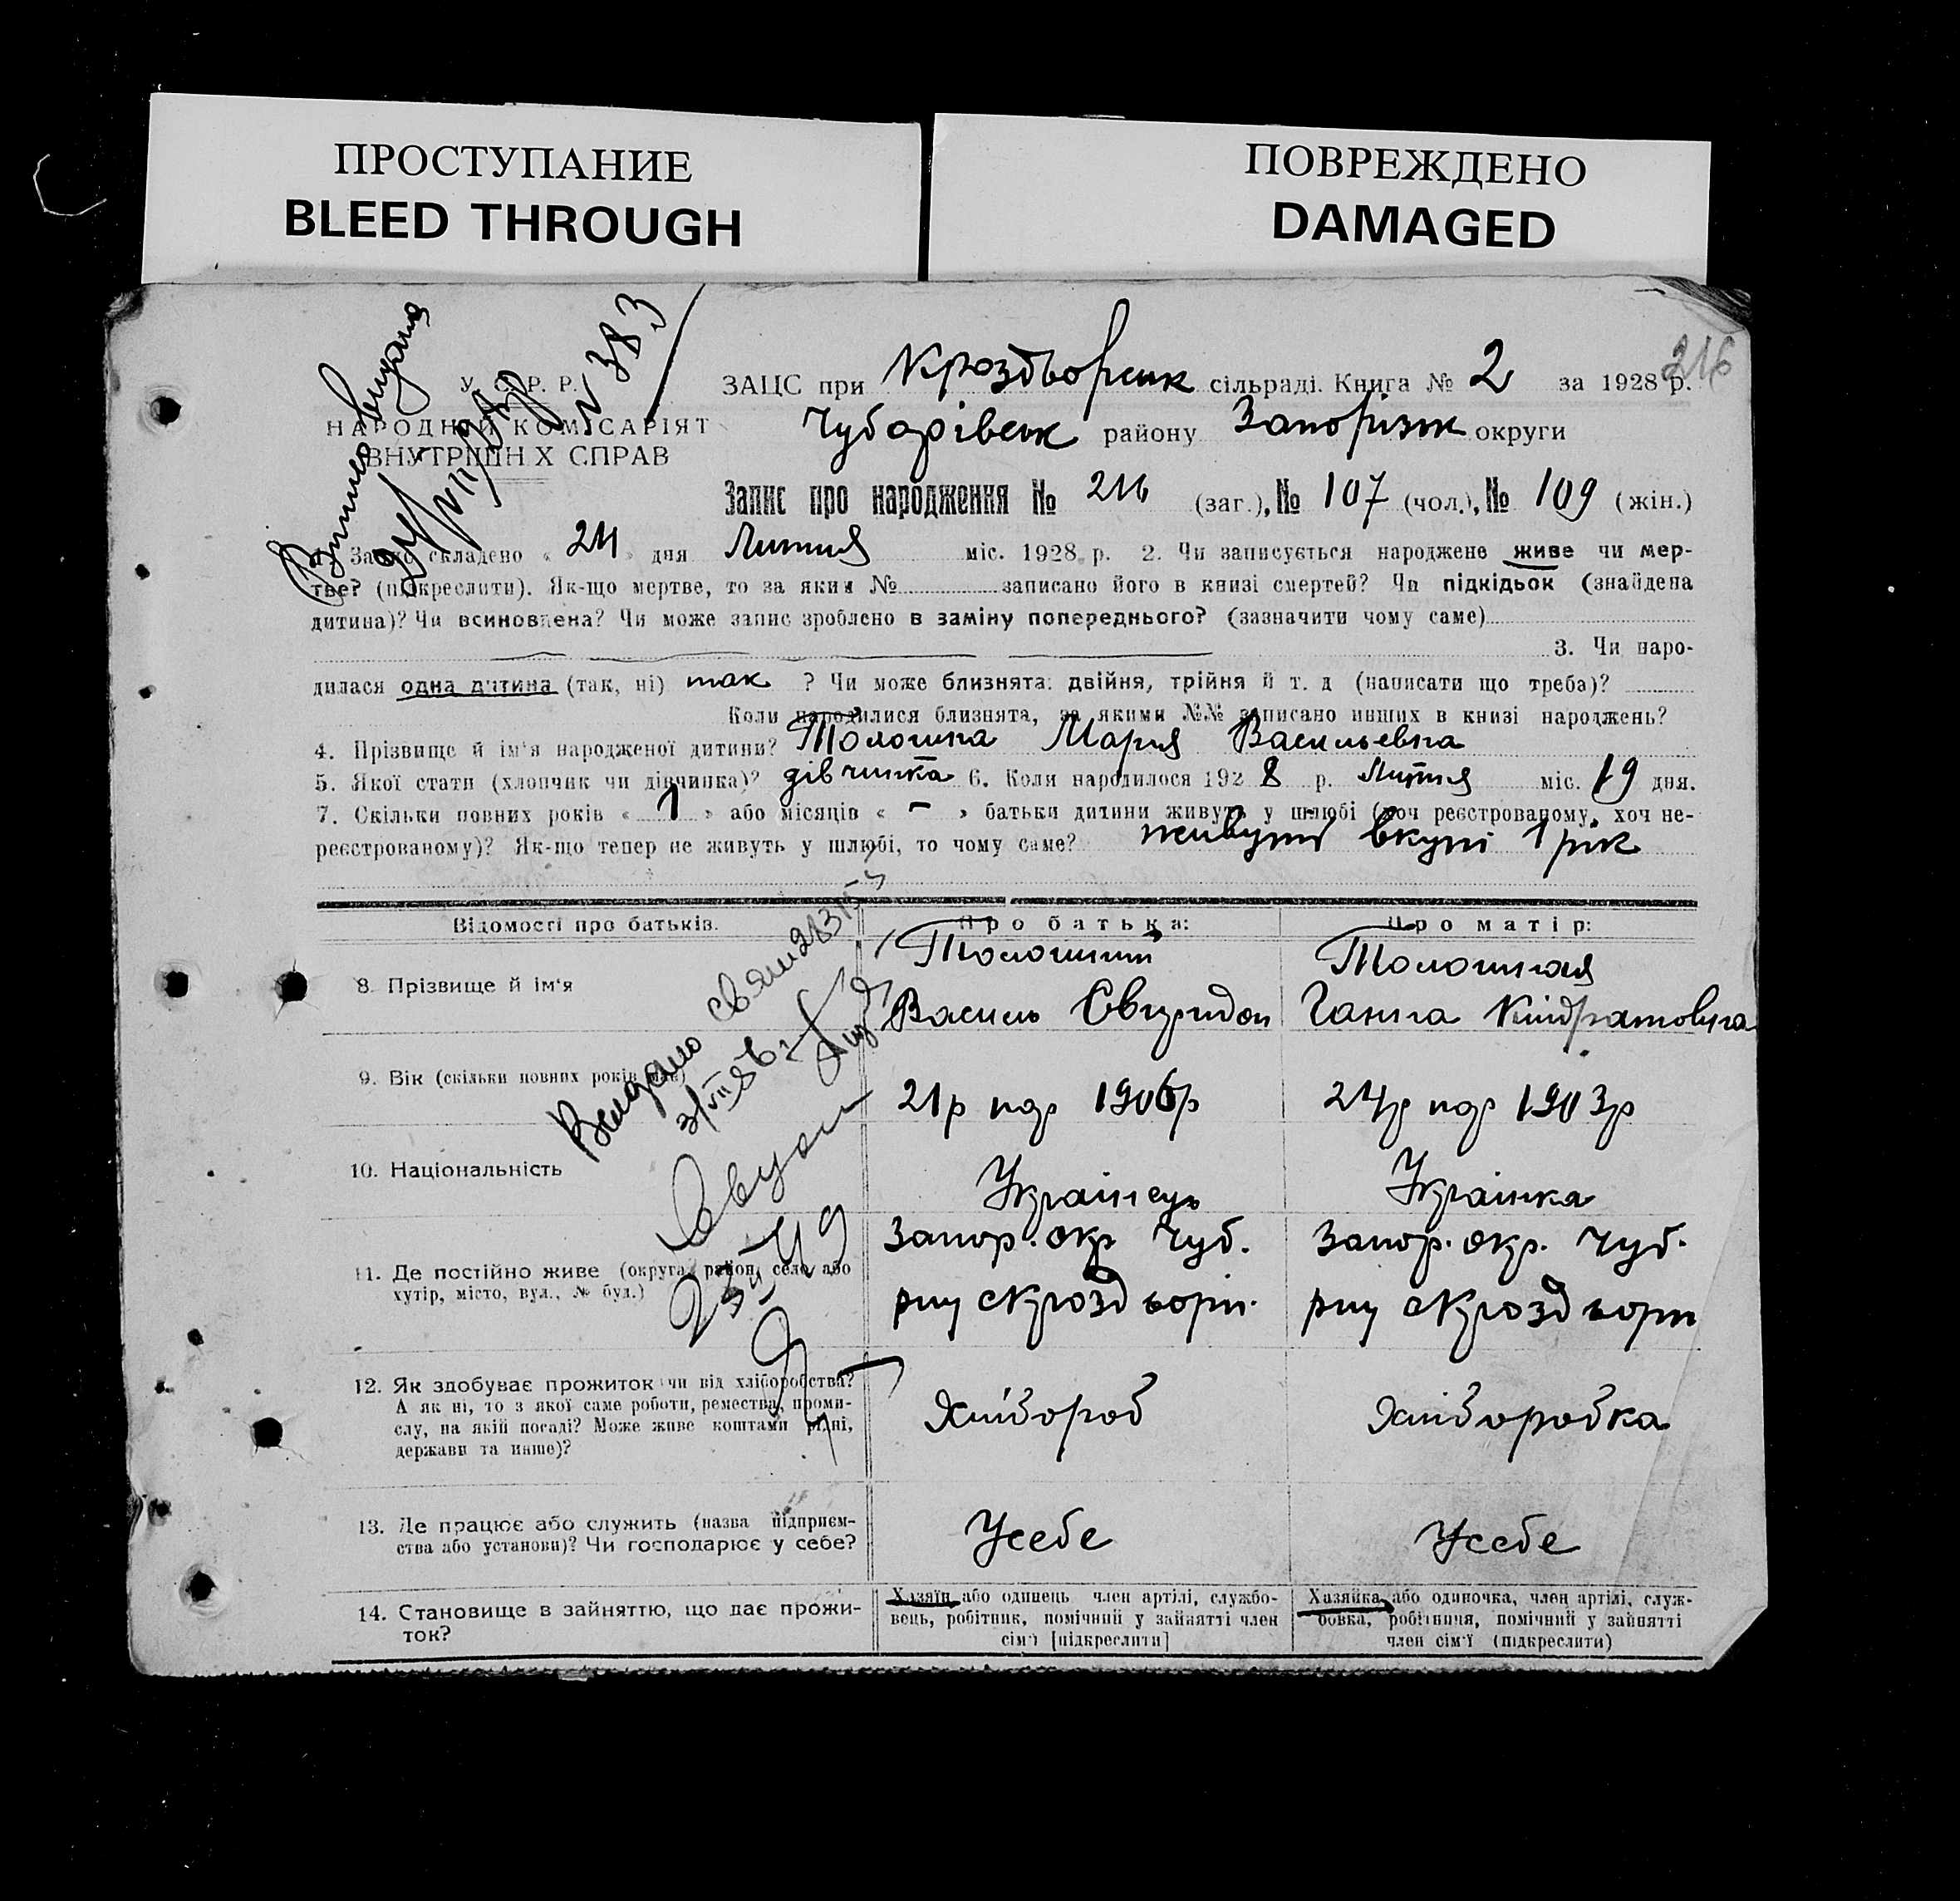 ПРОСТУПАНИЕ
BLEED THROUGH
ПОВРЕЖДЕНО
DAMAGED
216
№ 383
У. С. Р. Р.
НАРОДНИЙ КОМІСАРІЯТ
ВНУТРІШНІХ СПРАВ
ЗАЦС при сільраді. Книга № 2 за 1928 р.
Чубарівськ району Запорізьк округи
Запис про народження № 216 (заг.), № 107 (чол.), № 109 (жін.)
складено « 24 » дня Лютня міс. 1928 р. 2. Чи записується народжене живе чи мер-
тве? (підкреслити). Як-що мертве, то за яким № записано його в книзі смертей? Чи підкідьок (знайдена
дитина)? Чи всиновлена? Чи може запис зроблено в заміну попереднього? (зазначити чому саме)
3. Чи наро-
дилася одна дитина (так, ні) так ? Чи може близнята: двійня, трійня й т. д (написати що треба)?
Коли народилися близнята, за якими №№ записано инших в книзі народжень?
4. Прізвище й ім'я народженої дитини? Мария Васильевна
5. Якої стати (хлопчик чи дівчинка)? дівчинка 6. Коли народилося 1928 р. Лютня міс. 19 дня.
7. Скільки повних років « 1 » або місяців « - » батьки дитини живуть у шлюбі (хоч реєстрованому, хоч не-
реєстрованому)? Як-що тепер не живуть у шлюбі, то чому саме? живуть вкупі 1 рік
Відомості про батьків. Про батька: Про матір:
8. Прізвище й ім'я
Василь Ганна Кіндратовна
9. Вік (скільки повних років має) 21р 1906р 24р 1903р
10. Національність Українець Українка
11. Де постійно живе (округа, район, село або
хутір, місто, вул., № буд.)
Запор. окр Чуб. Запор. окр. Чуб.
12. Як здобуває прожиток чи від хліборобства?
А як ні, то з якої саме роботи, ремества, проми-
слу, на якій посаді? Може живе коштами рідні,
держави та инше)?
Хлібороб Хліборобка
13. Де працює або служить (назва підприєм-
ства або установи)? Чи господарює у себе?
Усебе Усебе
14. Становище в зайняттю, що дає прожи-
ток?
Хазяїн або одинець член артілі, службо-
вець, робітник, помічний у зайнятті член
сім'ї [підкреслити]
Хазяйка або одиночка, член артілі, служ-
бовка, робітниця, помічний у зайнятті
член сім'ї (підкреслити)